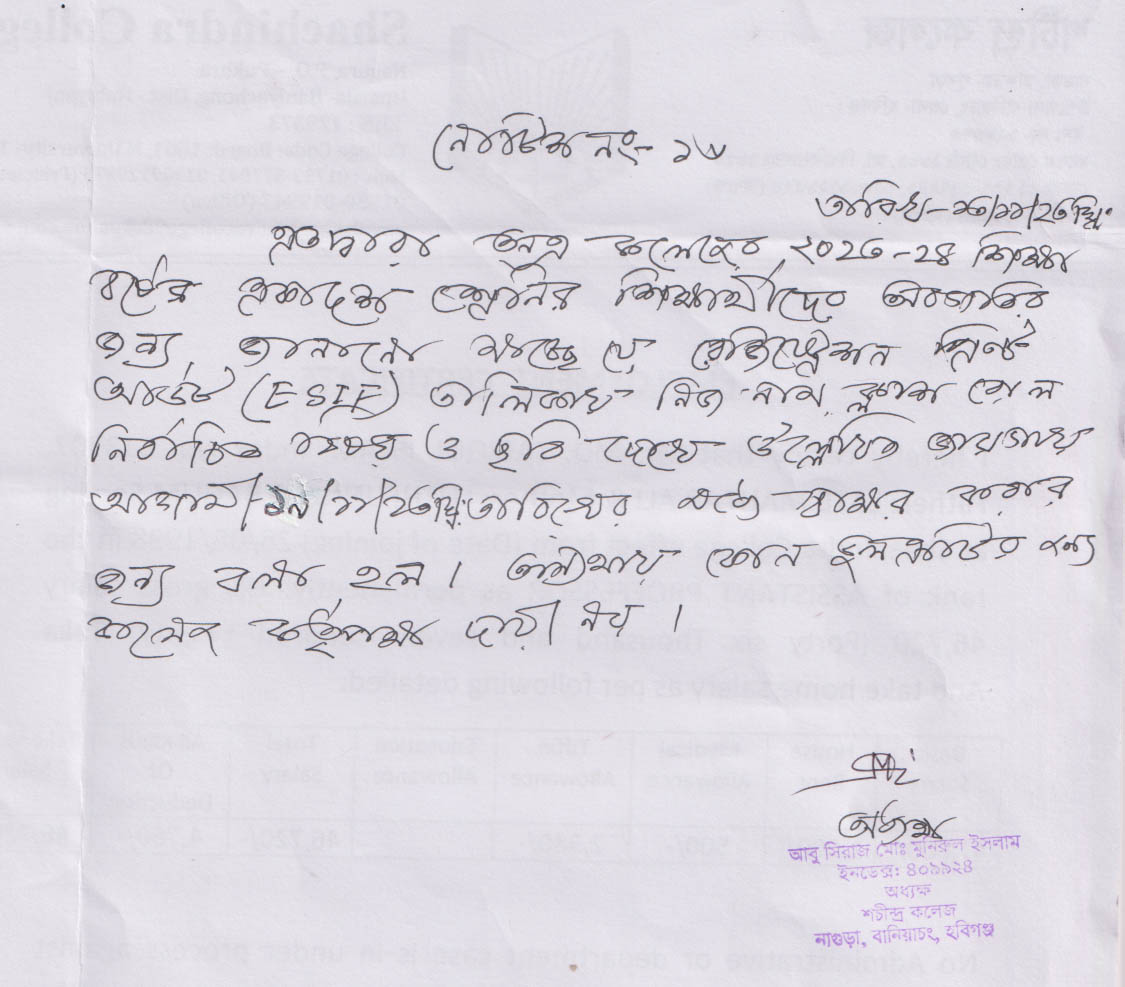 নোটিশ নং- ১৬
তারিখ-
এতদ্বারা অত্র কলেজের ২০২৩-২৪ শিক্ষা
বর্ষের একাদশ শ্রেনির শিক্ষার্থীদের অবগতির
জন্য জানানো যাচ্ছে যে রেজিস্ট্রেশন প্রিন্ট
আউট (ESIF) তালিকায় নিজ নাম, ক্লাস রোল
নির্বাচিত বিষয় ও ছবি দেখে উল্লেখিত জায়গায়
আগামী তারিখের মধ্যে স্বাক্ষর করার
জন্য বলা হল। অন্যথায় কোন ভুলত্রুটির জন্য
কলেজ কর্তৃপক্ষ দায়ী নয়।
অধ্যক্ষ
আবু সিরাজ মোঃ মুনিরুল ইসলাম
ইনডেক্স: ৪০৯৯২৪
অধ্যক্ষ
শচীন্দ্র কলেজ
নাগুড়া, বানিয়াচং, হবিগঞ্জ